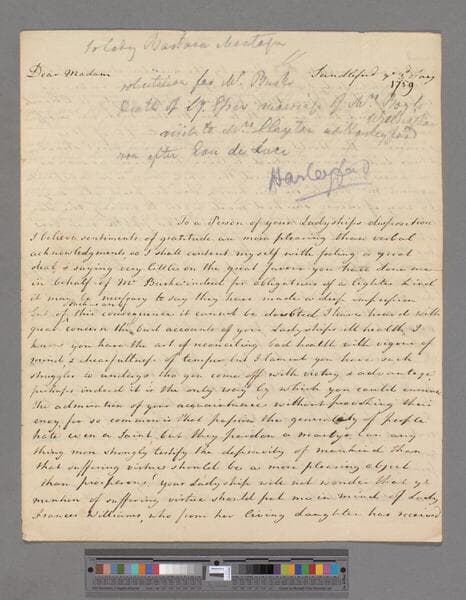 To Lady Barbara Montagu
Dear Madam
Sandleford ye 3d July
1759
solicitation for Mr Burke
Death of Sr marriage of Mrs
visit to Mrs Clayton at Harleyford
run after Eau de Luce
Harleyford
To a Person of your Ladyships disposition
I believe sentiments of gratitude are more pleasing than verbal
acknowledgments, so I shall content myself with feeling a great
deal & saying very little on the great favour you have done me
in behalf of Mr Burke indeed for obligations of a lighter kind
it may be necessary to say they have made a deep impression
but of this consequence it cannot be doubted. I have heard with
great concern the bad accounts of your Ladyships ill health, I
know you have the art of reconciling bad health with vigour of
mind, & chearfullness of temper, but I lament you have such
struggles to undergo tho you come off with victory & advantage,
perhaps indeed it is the only way by which you could
the admiration of your acquaintance without provoking their
envy, for so common is that passion the generality of people
hate even a Saint, but they pardon a martyr, can any
thing more strongly testify the depravity of mankind than
that suffering virtue should be a more pleasing object
than prosperous? your Ladyship will not wonder that ye
mention of suffering virtue should put me in mind of Lady
Frances Williams, who from her living daughter has received